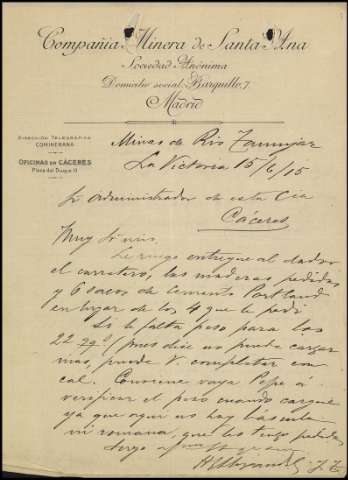 Compañía Minera de Santa Ana
Sociedad Anónima
Domicilio social: Barquillo, 7
Madrid
DIRECCIÓN TELEGRÁFICA
COMINERANA
OFICINAS EN CÁCERES
Plaza del Duque 11
Minas de Rio
La Victoria 15/6/15
Sr Administrador de esta Cia
Cáceres
Muy Sr mio:
Le ruego entregue al dador
el carretero, las maderas pedidas
y 6 sacos de cemento Portland
en lugar de los 4 que le pedi
Si le falta peso para los
22 pues dice no puede cargar
mas, puede V. completar con
cal. Conviene vaya Pepe á
verificar el peso cuando cargue
ya que aqui no hay báscula
ni romana, que las tengo pedidas